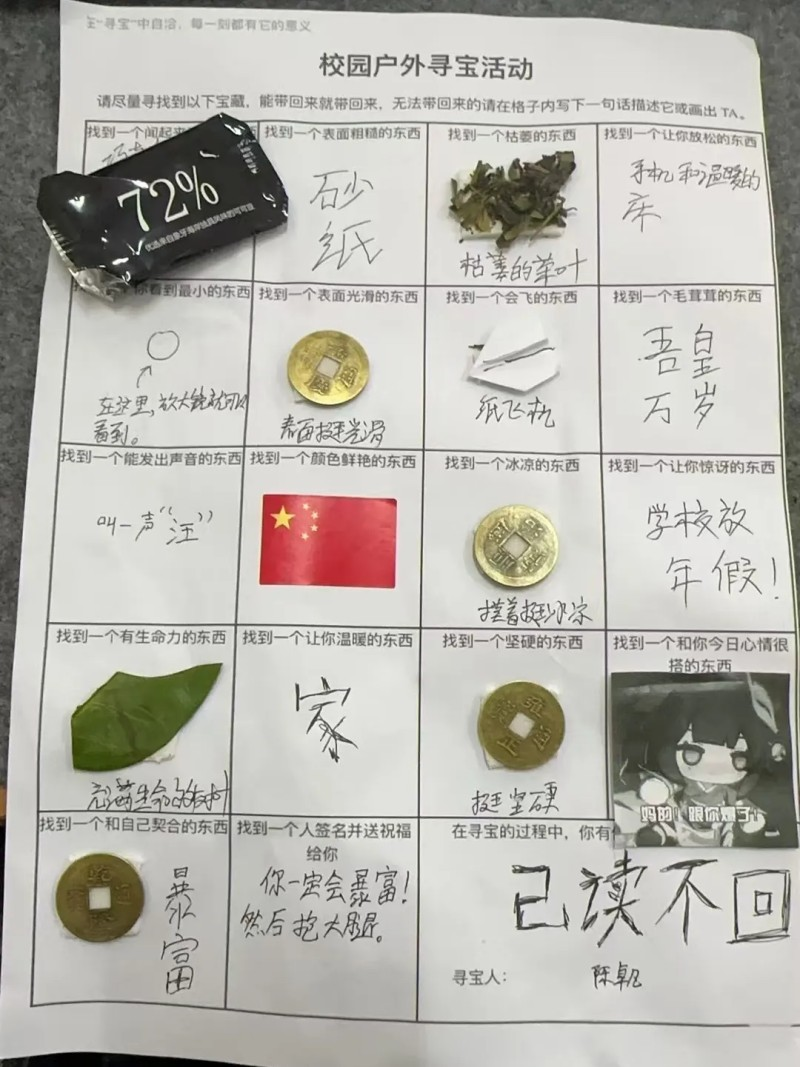 "寻宝"中自洽，每一刻都有它的意义
校园户外寻宝活动
请尽量寻找到以下宝藏，能带回来就带回来，无法带回来的请在格子内写下一句话描述它或画出 TA。
找到一个闻起来
72%
找到一个表面粗糙的东西
砂
纸
找到一个枯萎的东西
枯萎的茶叶
找到一个让你放松的东西
手机和温暖的
床
你看到最小的东西
在这里，放大镜就可以
看到。
找到一个表面光滑的东西
表面挺光滑
找到一个会飞的东西
纸飞机
找到一个毛茸茸的东西
吾皇
万岁
找到一个能发出声音的东西
叫一声“汪”
找到一个颜色鲜艳的东西
找到一个冰凉的东西
摸着挺冰凉
找到一个让你惊讶的东西
学校放
年假！
找到一个有生命力的东西
充满生命的树叶
找到一个让你温暖的东西
家
找到一个坚硬的东西
挺坚硬
找到一个和你今日心情很
搭的东西
妈的！跟你爆了！
找到一个和自己契合的东西
暴
富
找到一个人签名并送祝福
给你
你一定会暴富！
然后抱大腿。
在寻宝的过程中，你有
已读不回
寻宝人：